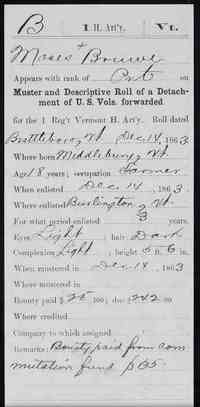 B | 1 H. Art'y. | Vt.
Moses + Brouve
Appears with rank of Pvt on
Muster and Descriptive Roll of a Detach-
ment of U. S. Vols. forwarded
for the 1 Reg't Vermont H. Art'y. Roll dated
Brattleboro, Vt Dec 14, 1863.
Where born Middlebury, Vt.
Age 18 years; occupation Farmer
When enlisted Dec 14, 1863.
Where enlisted Burlington, Vt
For what period enlisted 3 years.
Eyes Light; hair Dark
Complexion Lght; height 5 ft. 6 in.
When mustered in Dec 14, 1863
Where mustered in
Bounty paid $ 25 100; due 242 00
Where credited
Company to which assigned
Remarks: Bounty paid from com
mutation fund $65